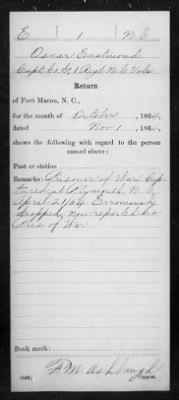 E 1 N C
Oscar Eastmond
Capt. Co. G, 1 Regt N. C. Vols
Return
of Fort Macon, N. C.,
for the month of October, 1864,
dated Nov 1, 186 .
shows the following with regard to the person
named above:
Post or station
Remarks: Prisoner of War Cap-
tured at Plymouth N. C.
April 21/64. Erroneously
dropped, now reported as
Pris of War
Book mark:
F M Ashbaugh
(446) Copyist.